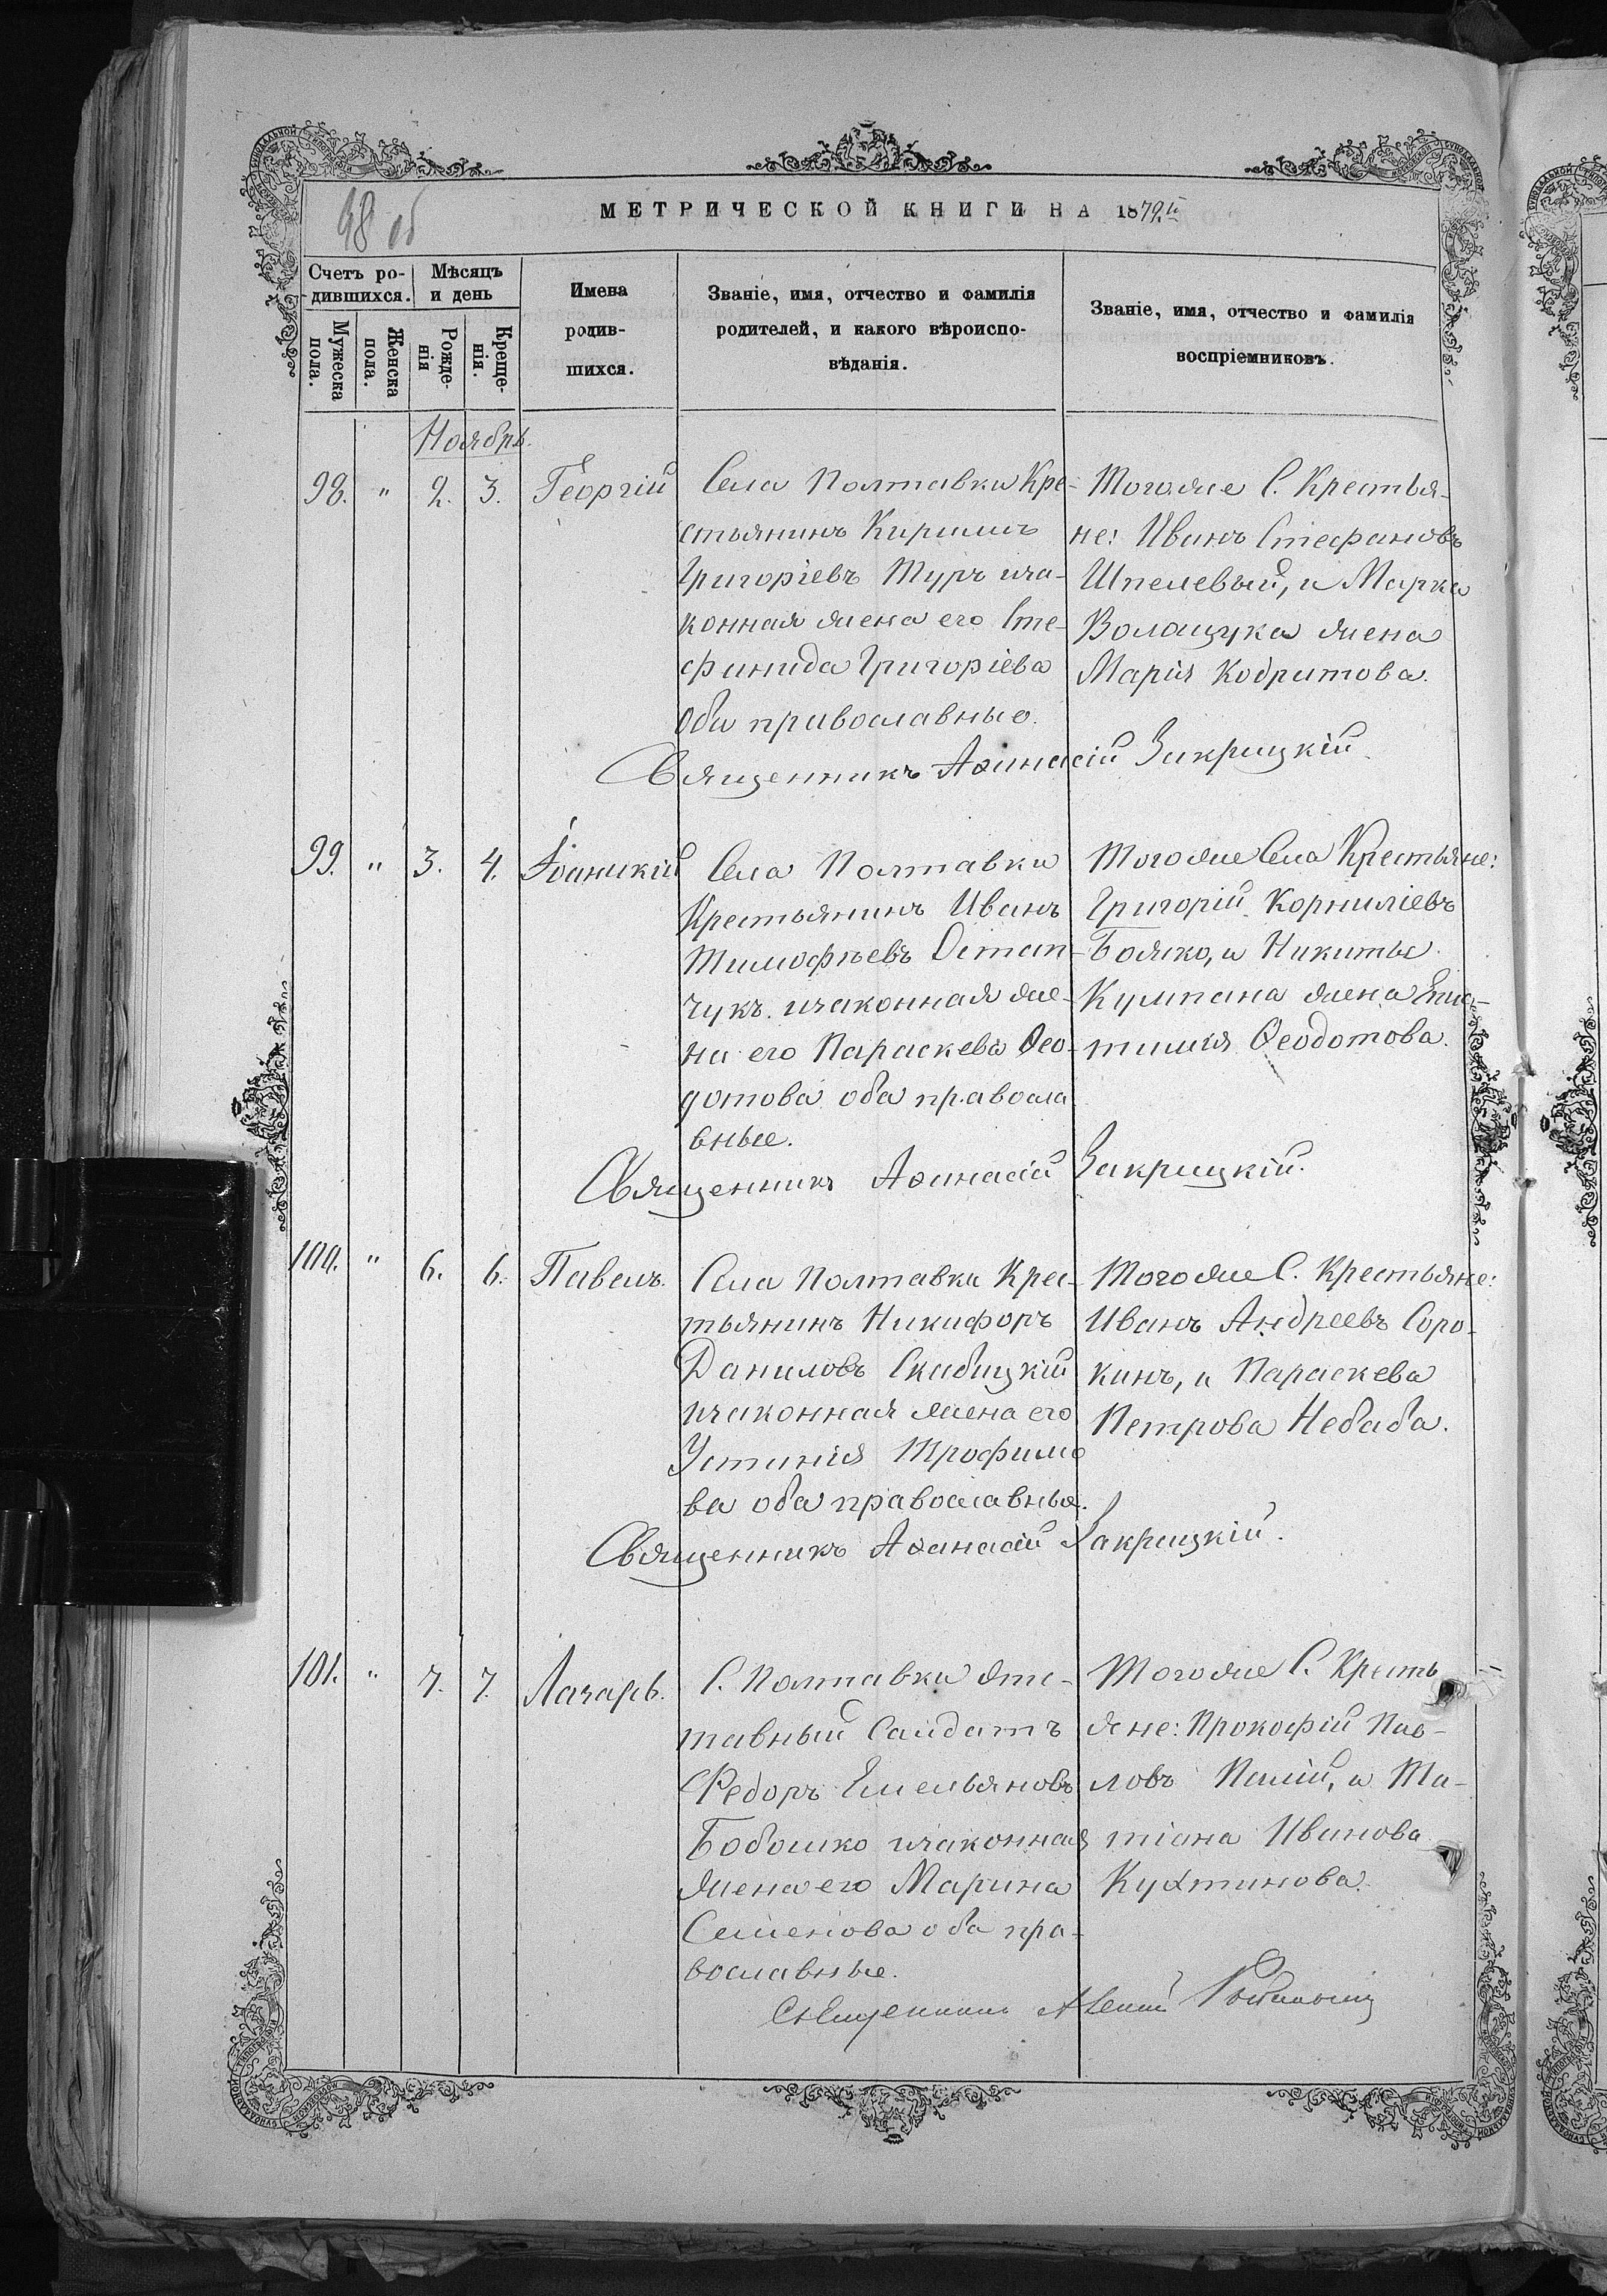 48 об
МЕТРИЧЕСКОЙ КНИГИ НА 1879.й
Счетъ ро-
дившихся.
Мѣсяцъ
и день
Мужеска
пола.
Женска
пола.
Рожде-
нія
Креще-
нія.
Имена
родив-
шихся.
Званіе, имя, отчество и фамилія
родителей, и какого вѣроиспо-
вѣданія.
Званіе, имя, отчество и фамилія
воспріемниковъ.
Ноябрь.
98. " 2. 3. Георгій
Села Полтавки Кре-
стьянинъ Кириллъ
Григоріевъ Туръ иза-
конная жена его Сте-
фанида Григоріева
оба православные.
Тогоже С. Крестья-
не: Иванъ Стефановъ
Шпелевый, и Марка
Волощука жена
Марія Кодратова.
Священникъ Аѳанасій Закрицкій.
99. " 3. 4. Іоаникій
Села Полтавки
Крестьянинъ Иванъ
Тимофѣевъ Остап-
чукъ изаконная же-
на его Параскева Ѳео-
дотова оба правосла
вные.
Тогоже Села Крестьяне:
Григорій Корниліевъ
Божко, и Никиты
Кулпана жена
Ѳеодотова.
Священникъ Аѳанасій Закрицкій.
100. " 6. 6. Павелъ.
Села Полтавки Крес-
тьянинъ Никифоръ
Даниловъ Скабицкій
изаконная жена его
Устинія Трофимо
ва оба православные.
Тогоже С. Крестьяне:
Иванъ Андреевъ Соро-
кинъ, и Параскева
Петрова Небаба.
Священникъ Аѳанасій Закрицкій.
101. " 7. 7. Лазарь.
С. Полтавки Отс-
тавный Салдатъ
Федоръ Емельяновъ
Бобошко изаконная
жена его Марина
Семенова оба пра-
вославные.
Тогоже С. Кресть
яне: Прокофій Пав-
ловъ Палій, и Та-
тіана Иванова
Кухтинова.
Священникъ